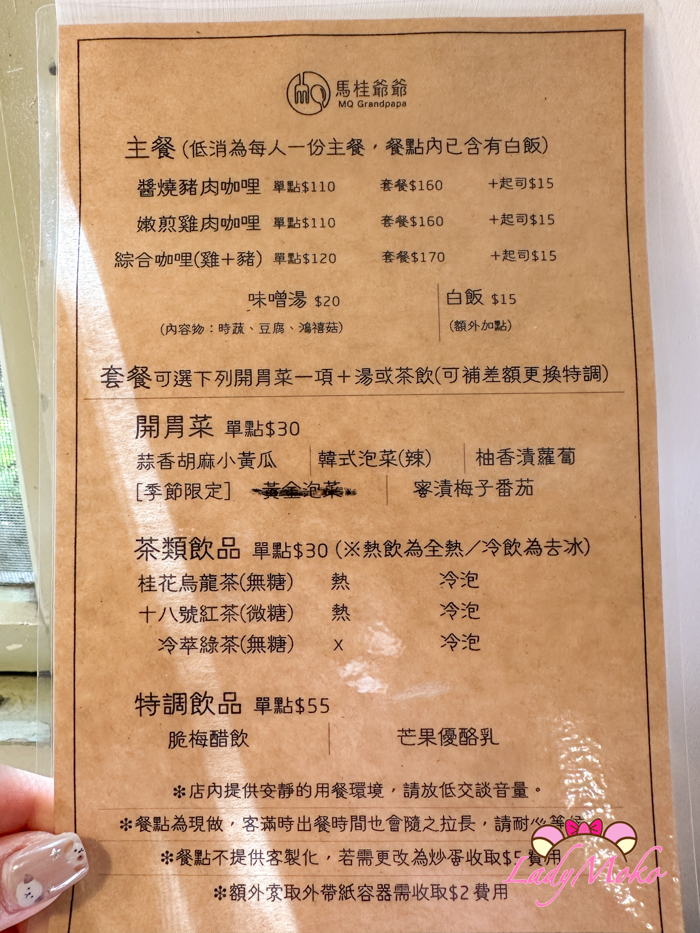 馬桂爺爺
MQ Grandpapa
主餐(低消為每人一份主餐，餐點內已含有白飯)
醬燒豬肉咖哩 單點$110 套餐$160 +起司$15
嫩煎雞肉咖哩 單點$110 套餐$160 +起司$15
綜合咖哩(雞+豬) 單點$120 套餐$170 +起司$15
味噌湯 $20 白飯 $15
(內容物：時蔬、豆腐、鴻禧菇) (額外加點)
套餐可選下列開胃菜一項＋湯或茶飲(可補差額更換特調)
開胃菜 單點$30
蒜香胡麻小黃瓜 韓式泡菜(辣) 柚香漬蘿蔔
[季節限定] 黃金泡菜 蜜漬梅子番茄
茶類飲品 單點$30 (※熱飲為全熱／冷飲為去冰)
桂花烏龍茶(無糖) 熱 冷泡
十八號紅茶(微糖) 熱 冷泡
冷萃綠茶(無糖) x 冷泡
特調飲品 單點$55
脆梅醋飲 芒果優酪乳
✻店內提供安靜的用餐環境，請放低交談音量。
✻餐點為現做，客滿時出餐時間也會隨之拉長，請耐心等候
✻餐點不提供客製化，若需更改為炒蛋收取$5費用
✻額外索取外帶紙容器需收取$2費用
LadyMoko